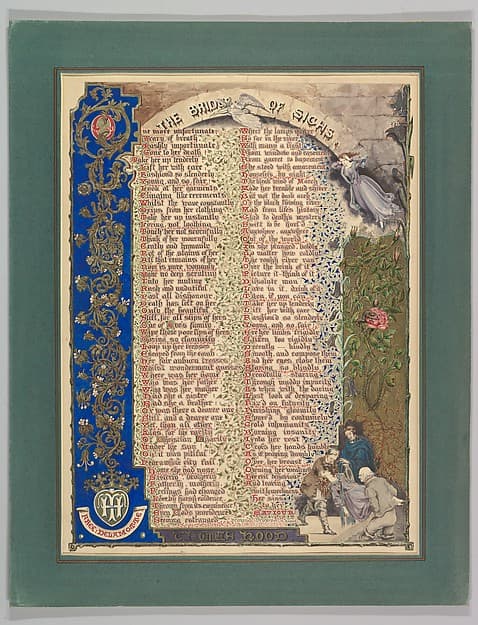 THE BRIDGE OF SIGHS
One more unfortunate
Weary of breath
Rashly importunate
Gone to her death
Take her up tenderly
Lift her with care
Fashioned so slenderly
Young and so fair
Look at her garments
Clinging like cerements
Whilst the wave constantly
Drips from her clothing
Take her up instantly
Loving not loathing
Touch her not scornfully
Think of her mournfully
Gently and humanly
Not of the stains of her
All that remains of her
Now is pure womanly
Make no deep scrutiny
Into her mutiny
Rash and undutiful
Past all dishonour
Death has left on her
Only the beautiful
Still, for all slips of hers
One of Eve's family
Wipe those poor lips of hers
Oozing so clammily
Loop up her tresses
Escaped from the comb
Her fair auburn tresses
Whilst wonderment guesses
Where was her home
Who was her father
Who was her mother
Had she a sister
Had she a brother
Or was there a dearer one
Still, and a nearer one
Yet, than all other
Alas, for the rarity
Of Christian charity
Under the sun
Oh it was pitiful
Near a whole city full
Home she had none
Sisterly, brotherly
Fatherly, motherly
Feelings had changed
Love by harsh evidence
Thrown from its eminence
Even God's providence
Seeming estranged
Where the lamps quiver
So far in the river
With many a light
From window and casement
From garret to basement
She stood with amazement
Houseless by night
The bleak wind of March
Made her tremble and shiver
But not the dark arch
Or the black flowing river
Mad from life's history
Glad to death's mystery
Swift to be hurl'd
Anywhere anywhere
Out of the world
In she plunged boldly
No matter how coldly
The rough river ran
Over the brink of it
Picture it think of it
Dissolute man
Lave in it, drink of it
Then, if you can
Take her up tenderly
Lift her with care
Fashion'd so slenderly
Young, and so fair
Ere her limbs frigidly
Stiffen too rigidly
Decently kindly
Smooth, and compose them
And her eyes close them
Staring so blindly
Dreadfully staring
Through muddy impurity
As when with the daring
Last look of despairing
Fix'd on futurity
Perishing gloomily
Spurr'd by contumely
Cold inhumanity
Burning insanity
Into her rest
Cross her hands humbly
As if praying dumbly
Over her breast
Owning her weakness
Her evil behaviour
And leaving
Her sins
to her
SAVIOUR
THOMAS HOOD